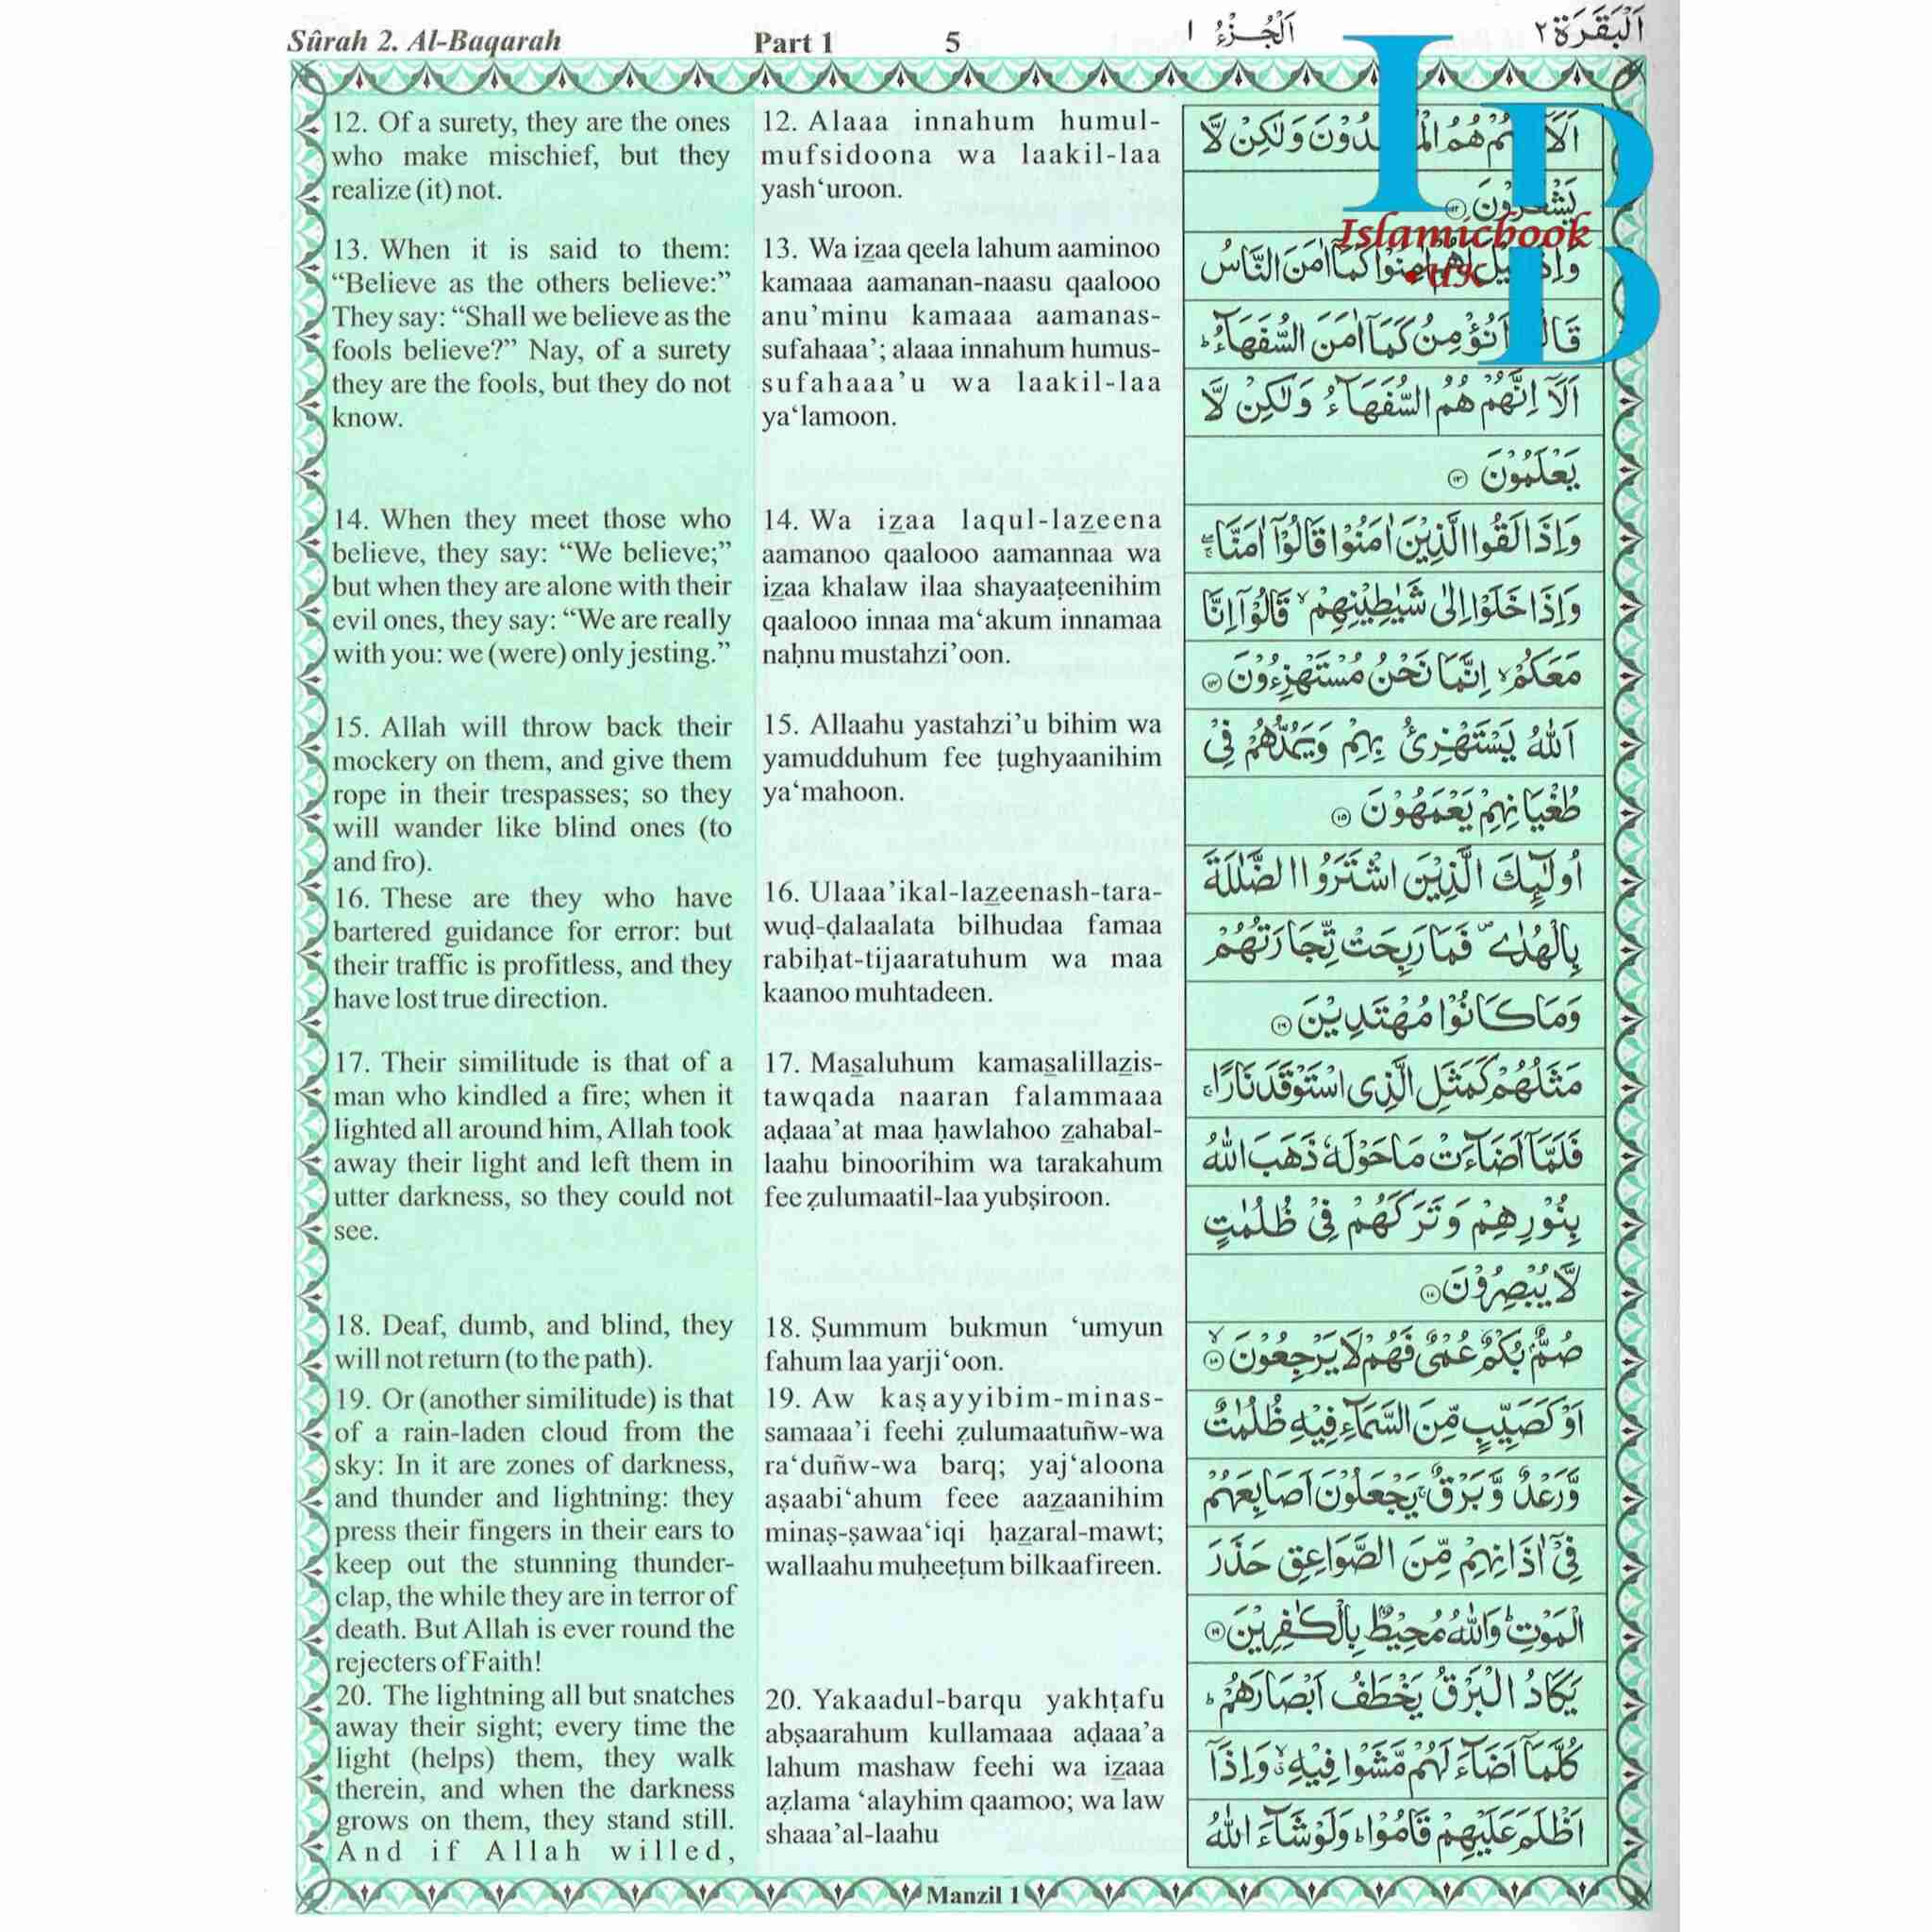 Sûrah 2. Al-Baqarah Part 1 5 اَلْجُزْءُ ١ اَلْبَقَرَة ٢
12. Of a surety, they are the ones
who make mischief, but they
realize (it) not.
13. When it is said to them:
“Believe as the others believe:”
They say: “Shall we believe as the
fools believe?” Nay, of a surety
they are the fools, but they do not
know.
14. When they meet those who
believe, they say: “We believe;”
but when they are alone with their
evil ones, they say: “We are really
with you: we (were) only jesting.”
15. Allah will throw back their
mockery on them, and give them
rope in their trespasses; so they
will wander like blind ones (to
and fro).
16. These are they who have
bartered guidance for error: but
their traffic is profitless, and they
have lost true direction.
17. Their similitude is that of a
man who kindled a fire; when it
lighted all around him, Allah took
away their light and left them in
utter darkness, so they could not
see.
18. Deaf, dumb, and blind, they
will not return (to the path).
19. Or (another similitude) is that
of a rain-laden cloud from the
sky: In it are zones of darkness,
and thunder and lightning: they
press their fingers in their ears to
keep out the stunning thunder-
clap, the while they are in terror of
death. But Allah is ever round the
rejecters of Faith!
20. The lightning all but snatches
away their sight; every time the
light (helps) them, they walk
therein, and when the darkness
grows on them, they stand still.
And if Allah willed,
12. Alaaa innahum humul-
mufsidoona wa laakil-laa
yash‘uroon.
13. Wa izaa qeela lahum aaminoo
kamaaa aamanan-naasu qaalooo
anu’minu kamaaa aamanas-
sufahaaa’; alaaa innahum humus-
sufahaaa’u wa laakil-laa
ya‘lamoon.
14. Wa izaa laqul-lazeena
aamanoo qaalooo aamannaa wa
izaa khalaw ilaa shayaaṭeenihim
qaalooo innaa ma‘akum innamaa
naḥnu mustahzi’oon.
15. Allaahu yastahzi’u bihim wa
yamudduhum fee ṭughyaanihim
ya‘mahoon.
16. Ulaaa’ikal-lazeenash-tara-
wuḍ-ḍalaalata bilhudaa famaa
rabiḥat-tijaaratuhum wa maa
kaanoo muhtadeen.
17. Masaluhum kamasalillazis-
tawqada naaran falammaaa
aḍaaa’at maa ḥawlahoo zahabal-
laahu binoorihim wa tarakahum
fee ẓulumaatil-laa yubṣiroon.
18. Ṣummum bukmun ‘umyun
fahum laa yarji‘oon.
19. Aw kaṣayyibim-minas-
samaaa’i feehi ẓulumaatuñw-wa
ra‘duñw-wa barq; yaj‘aloona
aṣaabi‘ahum feee aazaanihim
minaṣ-ṣawaa‘iqi ḥazaral-mawt;
wallaahu muḥeeṭum bilkaafireen.
20. Yakaadul-barqu yakhṭafu
abṣaarahum kullamaaa aḍaaa’a
lahum mashaw feehi wa izaaa
aẓlama ‘alayhim qaamoo; wa law
shaaa’al-laahu
هُمُ وَلٰكِنْ لَّا
يَشْعُرُوْنَ ١٢
اٰمِنُوْا كَمَاۤ اٰمَنَ النَّاسُ
اَنُؤْمِنُ كَمَاۤ اٰمَنَ السُّفَهَآءُ ؕ
اَلَاۤ اِنَّهُمْ هُمُ السُّفَهَآءُ وَلٰكِنْ لَّا
يَعْلَمُوْنَ ١٣
وَاِذَا لَقُوا الَّذِيْنَ اٰمَنُوْا قَالُوْۤا اٰمَنَّا ۖۚ
وَاِذَا خَلَوْا اِلٰى شَيٰطِيْنِهِمْ ۙ قَالُوْۤا اِنَّا
مَعَكُمْ ۙ اِنَّمَا نَحْنُ مُسْتَهْزِءُوْنَ ١٤
اَللّٰهُ يَسْتَهْزِئُ بِهِمْ وَيَمُدُّهُمْ فِيْ
طُغْيَانِهِمْ يَعْمَهُوْنَ ١٥
اُولٰٓئِكَ الَّذِيْنَ اشْتَرَوُا الضَّلٰلَةَ
بِالْهُدٰى ۪ فَمَا رَبِحَتْ تِّجَارَتُهُمْ
وَمَا كَانُوْا مُهْتَدِيْنَ ١٦
مَثَلُهُمْ كَمَثَلِ الَّذِى اسْتَوْقَدَ نَارًا ۚ
فَلَمَّاۤ اَضَآءَتْ مَا حَوْلَهٗ ذَهَبَ اللّٰهُ
بِنُوْرِهِمْ وَتَرَكَهُمْ فِيْ ظُلُمٰتٍ
لَّا يُبْصِرُوْنَ ١٧
صُمٌّۢ بُكْمٌ عُمْىٌ فَهُمْ لَا يَرْجِعُوْنَ ۙ ١٨
اَوْ كَصَيِّبٍ مِّنَ السَّمَآءِ فِيْهِ ظُلُمٰتٌ
وَّرَعْدٌ وَّبَرْقٌ ۚ يَجْعَلُوْنَ اَصَابِعَهُمْ
فِيْۤ اٰذَانِهِمْ مِّنَ الصَّوَاعِقِ حَذَرَ
الْمَوْتِ ؕ وَاللّٰهُ مُحِيْطٌۢ بِالْكٰفِرِيْنَ ١٩
يَكَادُ الْبَرْقُ يَخْطَفُ اَبْصَارَهُمْ ؕ
كُلَّمَاۤ اَضَآءَ لَهُمْ مَّشَوْا فِيْهِ ۙ وَاِذَاۤ
اَظْلَمَ عَلَيْهِمْ قَامُوْا ؕ وَلَوْ شَآءَ اللّٰهُ
IBD
Islamicbook
.uk
Manzil 1